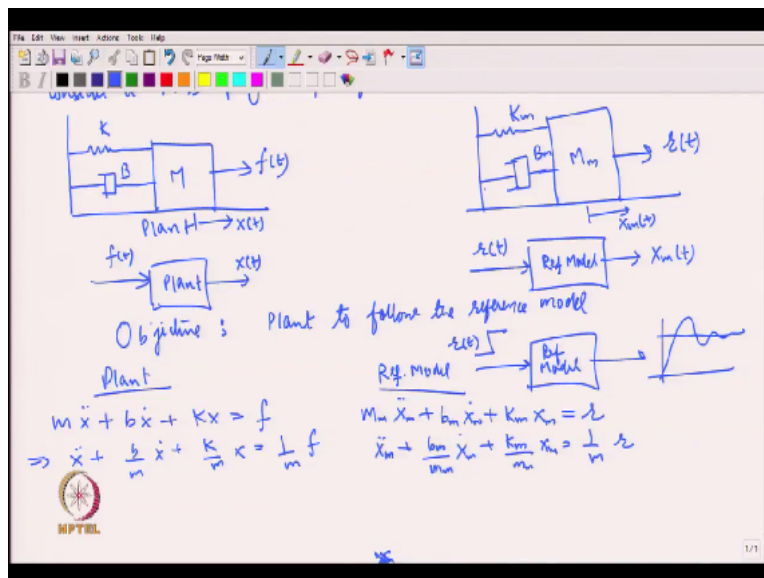 File Edit View Insert Actions Tools Help
Page Width
B I
K
B
M
f(t)
Plant
x(t)
Km
Bm
Mm
r(t)
xm(t)
f(t)
Plant
x(t)
r(t)
Ref Model
xm(t)
Objective : Plant to follow the reference model
r(t)
Ref Model
Plant
Ref. Model
mẍ + bẋ + Kx = f
Mm ẍm + bm ẋm + Km xm = r
⇒ ẍ + b/m ẋ + k/m x = 1/m f
ẍm + bm/mm ẋm + Km/mm xm = 1/m r
NPTEL
1/1